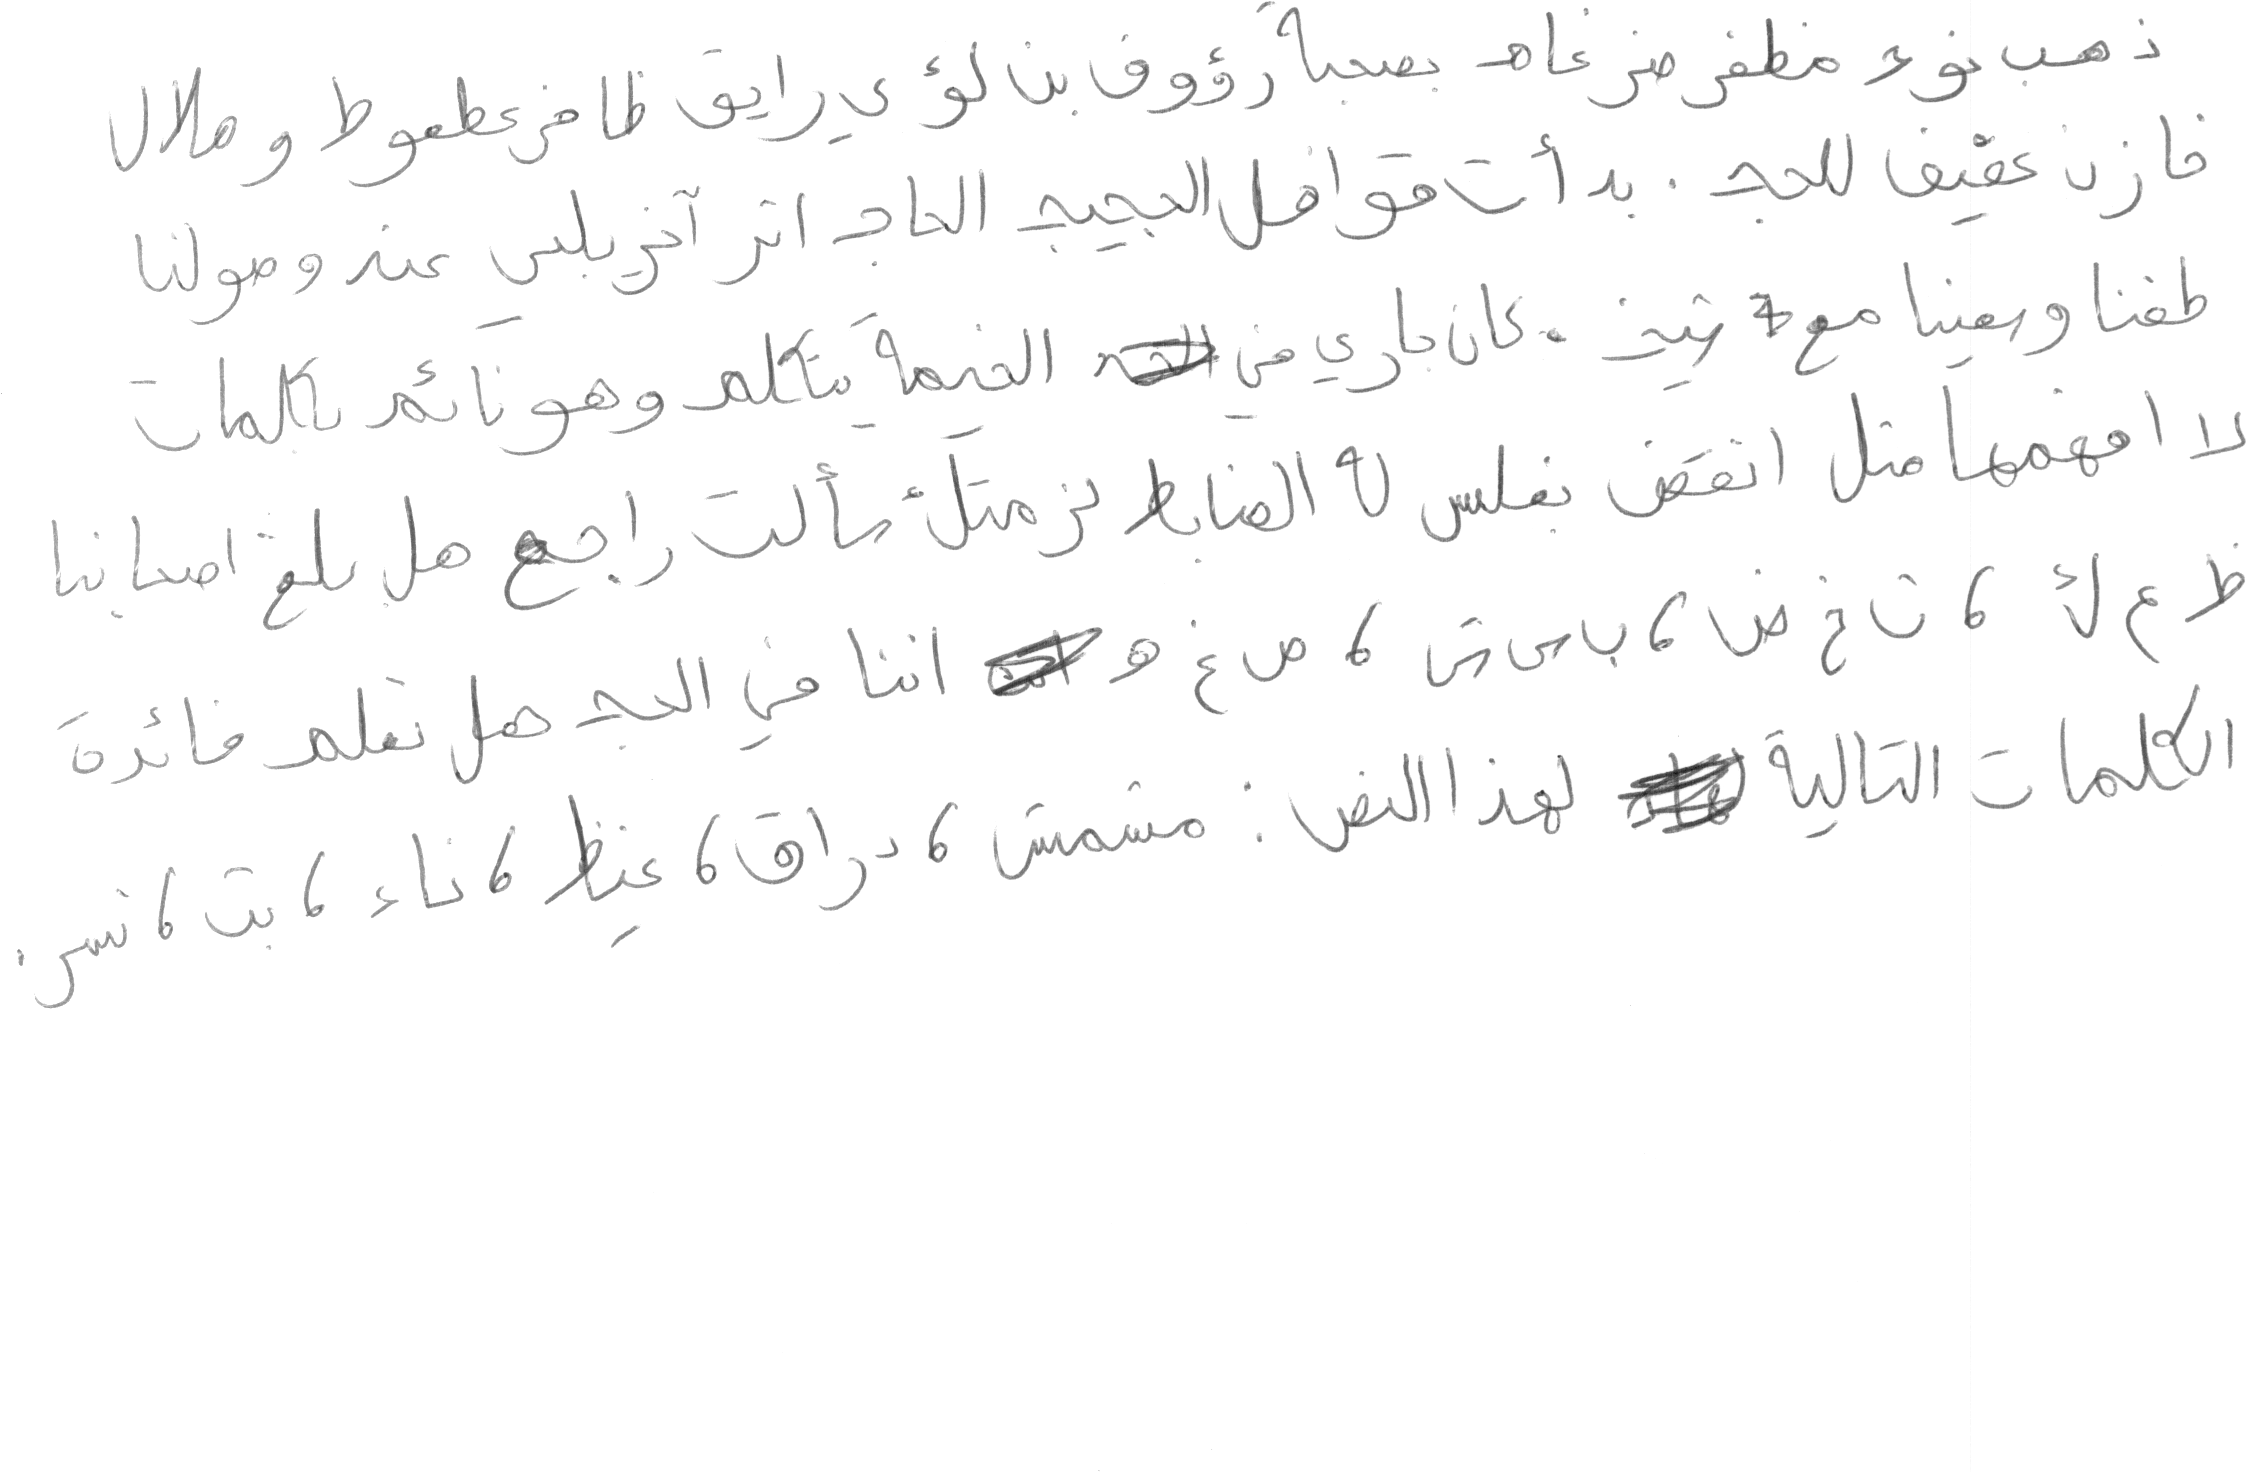 ذهب نوح مظفر ضرغام بصحبة رؤوف بن لؤي برايق ظافر عطعوط و هلال
فازن عفيف للحج . بدأت قوافل الحجيج الحاج اثر آخر يلبي عند وصولنا
طفنا وسعينا مع شيخ . كان جاري في الخيمة يتكلم وهو نائم بكلمات
لا افهمها مثل انقض بفلس لا الضابط نزمتك سألت راجع هل بلغ اصحابنا
ظ ع ك ، ث خ ض ، ب س ش ، ص غ ه اننا في الحج هل تعلم فائدة
الكلمات التالية لهذا النص : مشمش ، دراق ، غيظ ، ناء ، بت ، نسر .